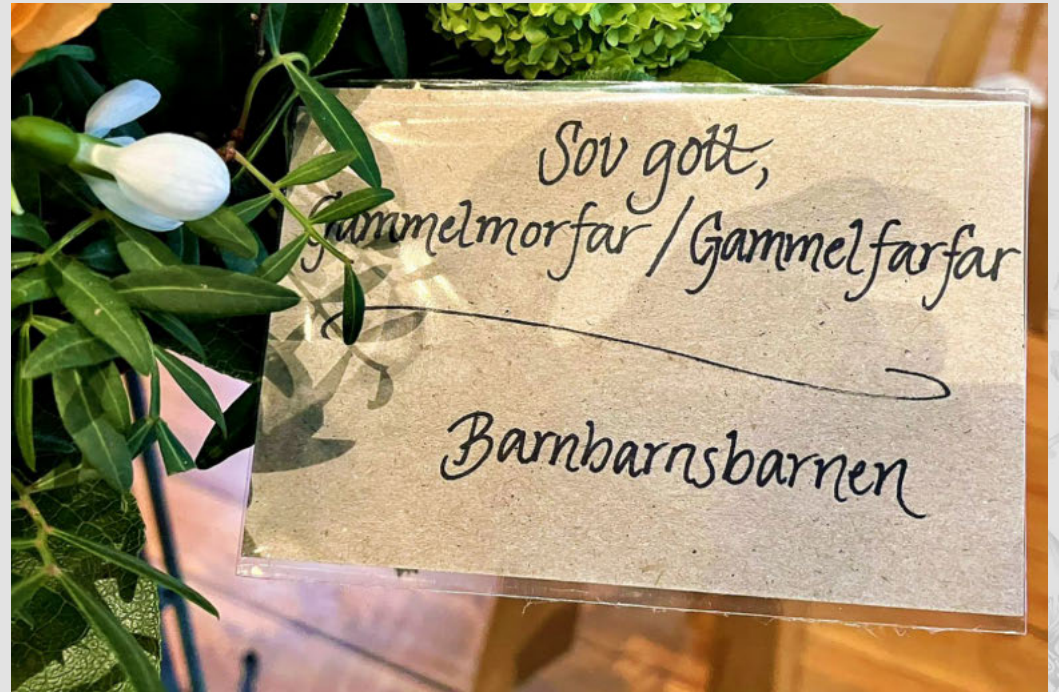 Sov gott,
Gammelmorfar / Gammelfarfar
Barnbarnsbarnen